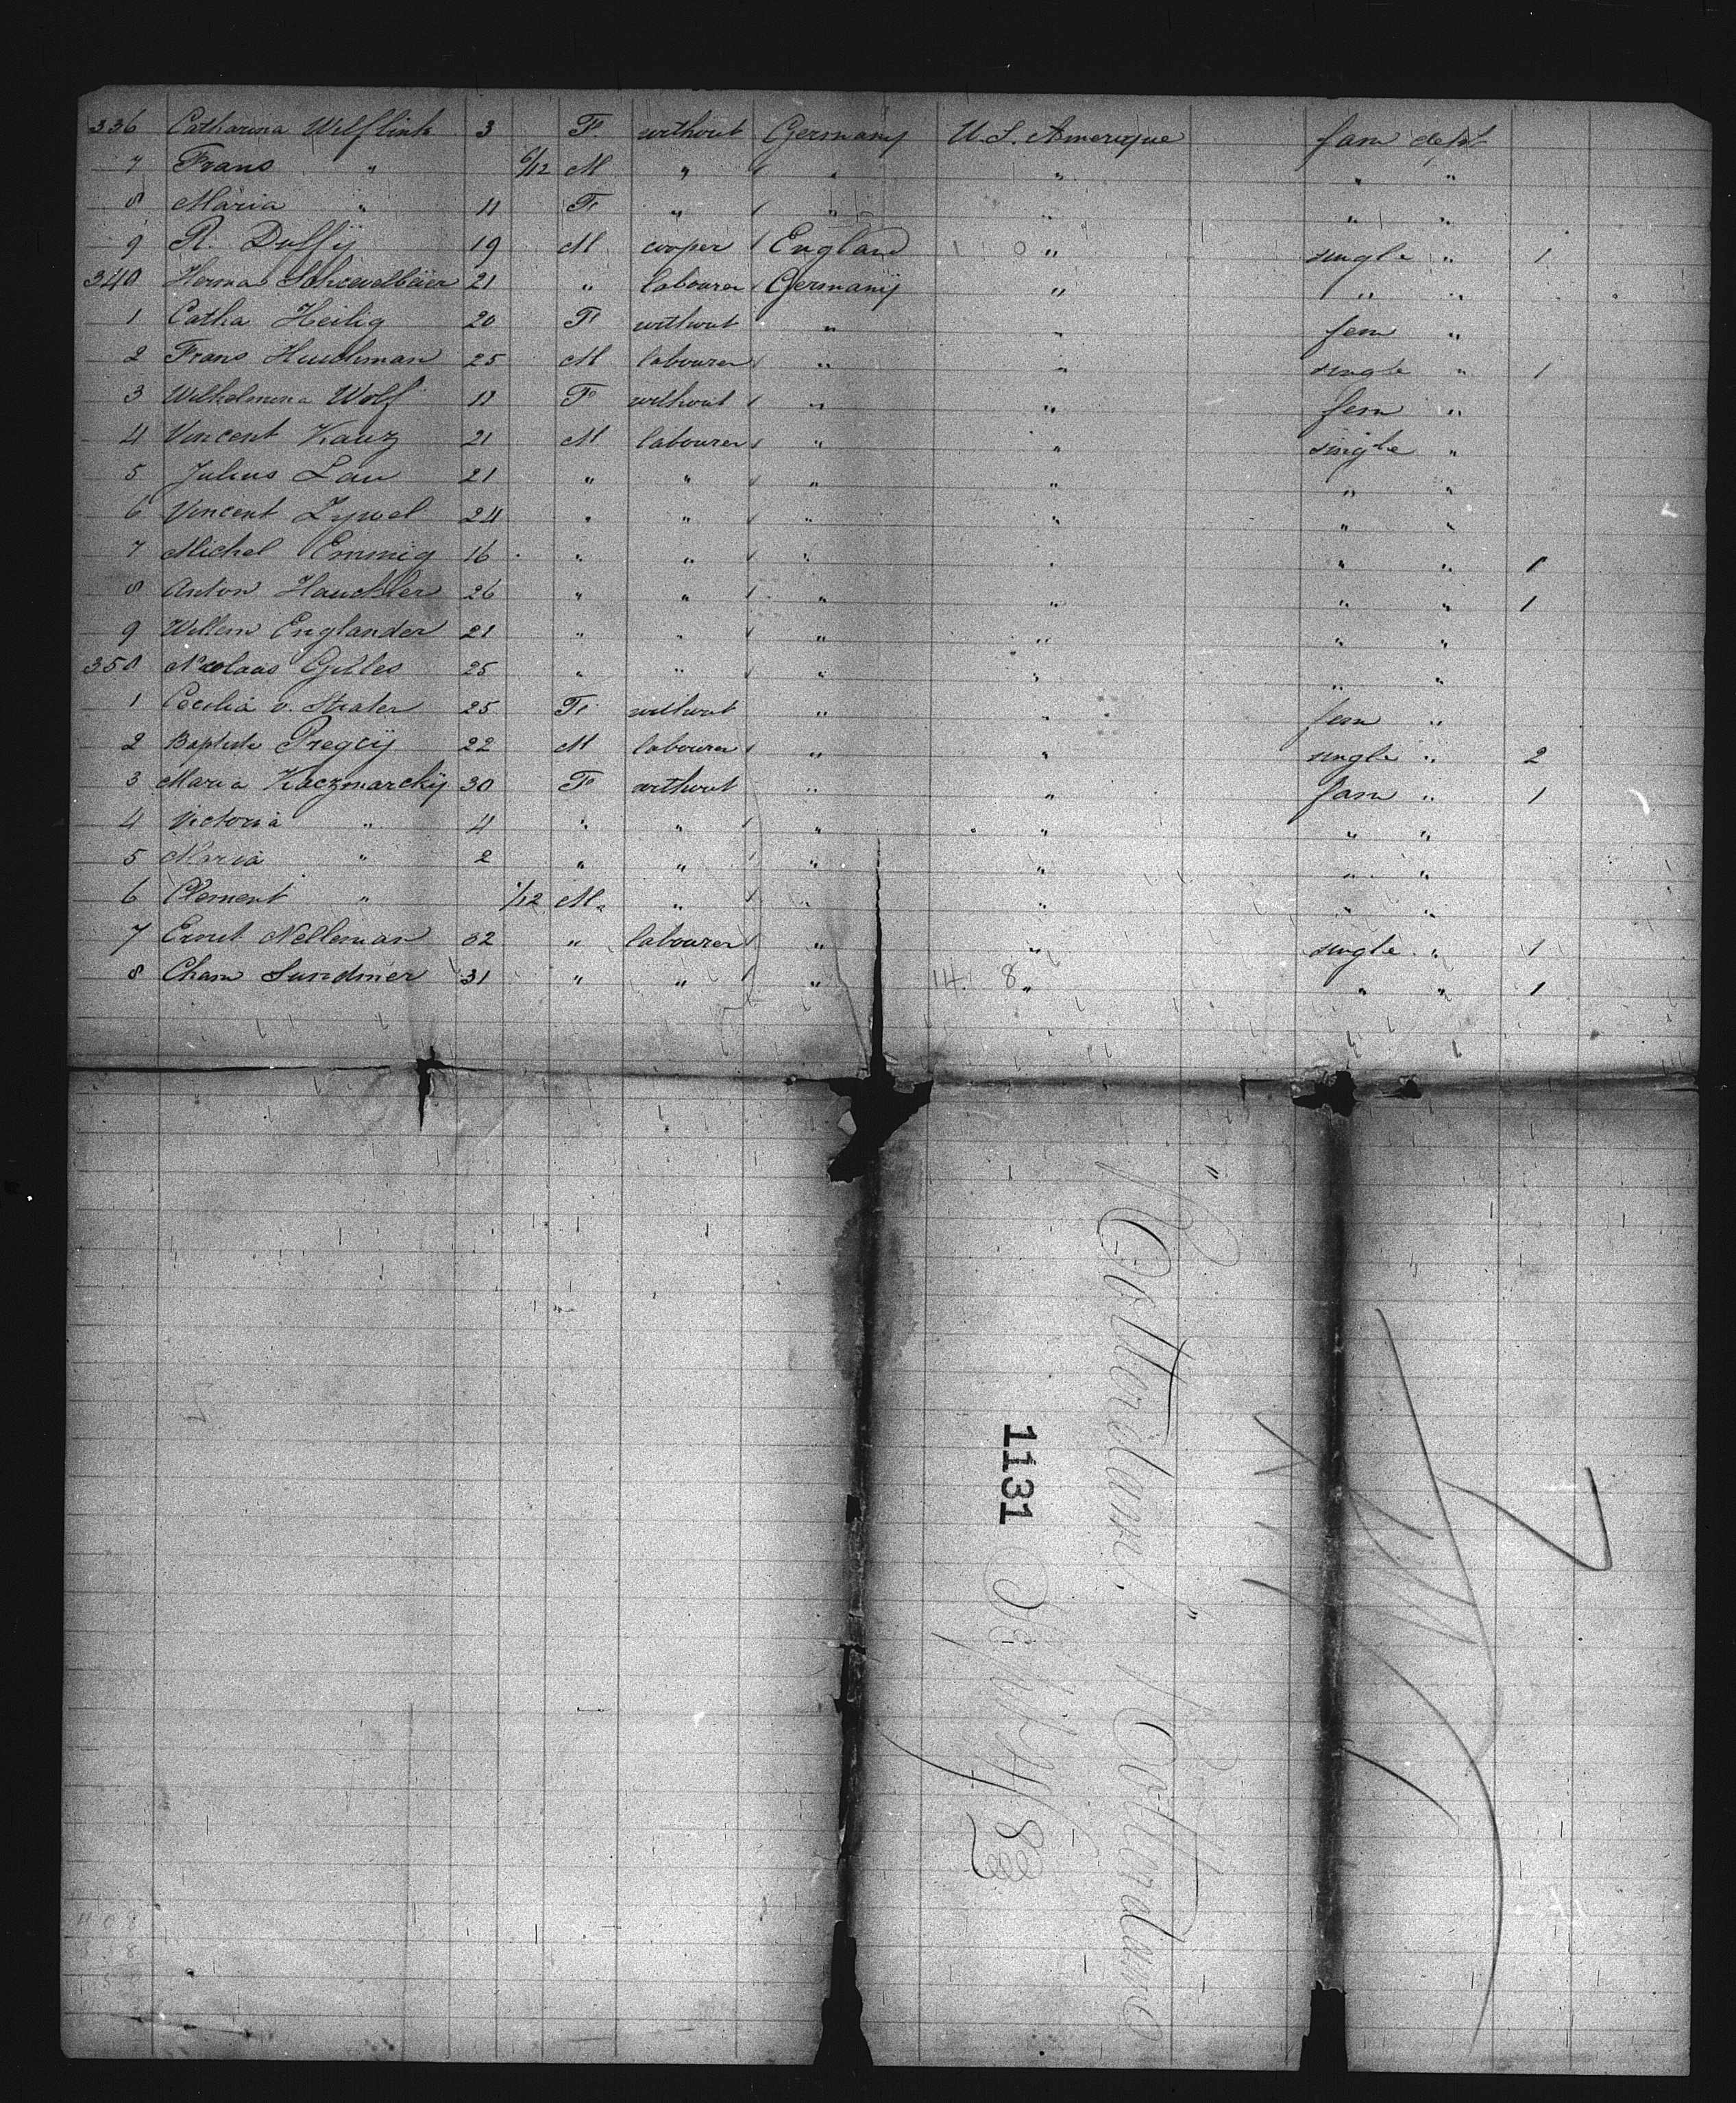 336 Catharina Wilflink 3 F. without Germany U.S. Amerique fam dept
7 Frans " 6/12 M " " " " "
8 Maria " 11 F " " " " "
9 R. Duffÿ 19 M cooper England " single " 1
340 Herma 21 " labourer Germanÿ " " "
1 Catha Heilig 20 F without " " fem "
2 Frans Huschman 25 M labourer " " single " 1
3 Wilhelmina Wolf 17 F without " " fem "
4 Vincent Kauz 21 M labourer " " single "
5 Julius Lau 21 " " " " " "
6 Vincent Zywel 24 " " " " " "
7 Michel Emmig 16 " " " " " " 1
8 Anton Hauckler 26 " " " " " " 1
9 Willem Englander 21 " " " " " "
350 Nicolaas Gilles 25 " " " " " "
1 Cecilia v. Straten 25 F without " " fem "
2 Baptiste Pregcÿ 22 M labourer " " single " 2
3 Maria Kaczmarckÿ 30 F without " " fam " 1
4 Victoria " 4 " " " " " "
5 Maria " 2 " " " " " "
6 Clement " 1/12 M " " " " "
7 Ernst Nelleman 32 " labourer " " single " 1
8 Cham Sundmer 31 " " " 14. 8 " " " 1
"Rotterdam." Rotterdam
1131 Sept 4/82